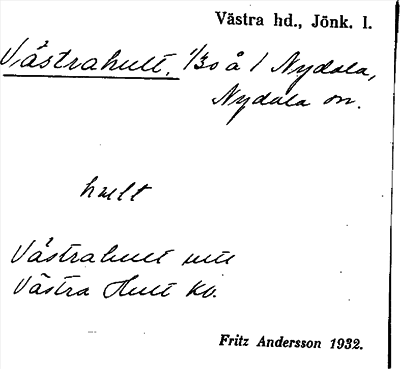 Västra hd., Jönk. l.
Västrahult, 1/30 å 1 Nydala,
Nydala sn.
hult
Västrahult
Västra Hult
Fritz Andersson 1932.